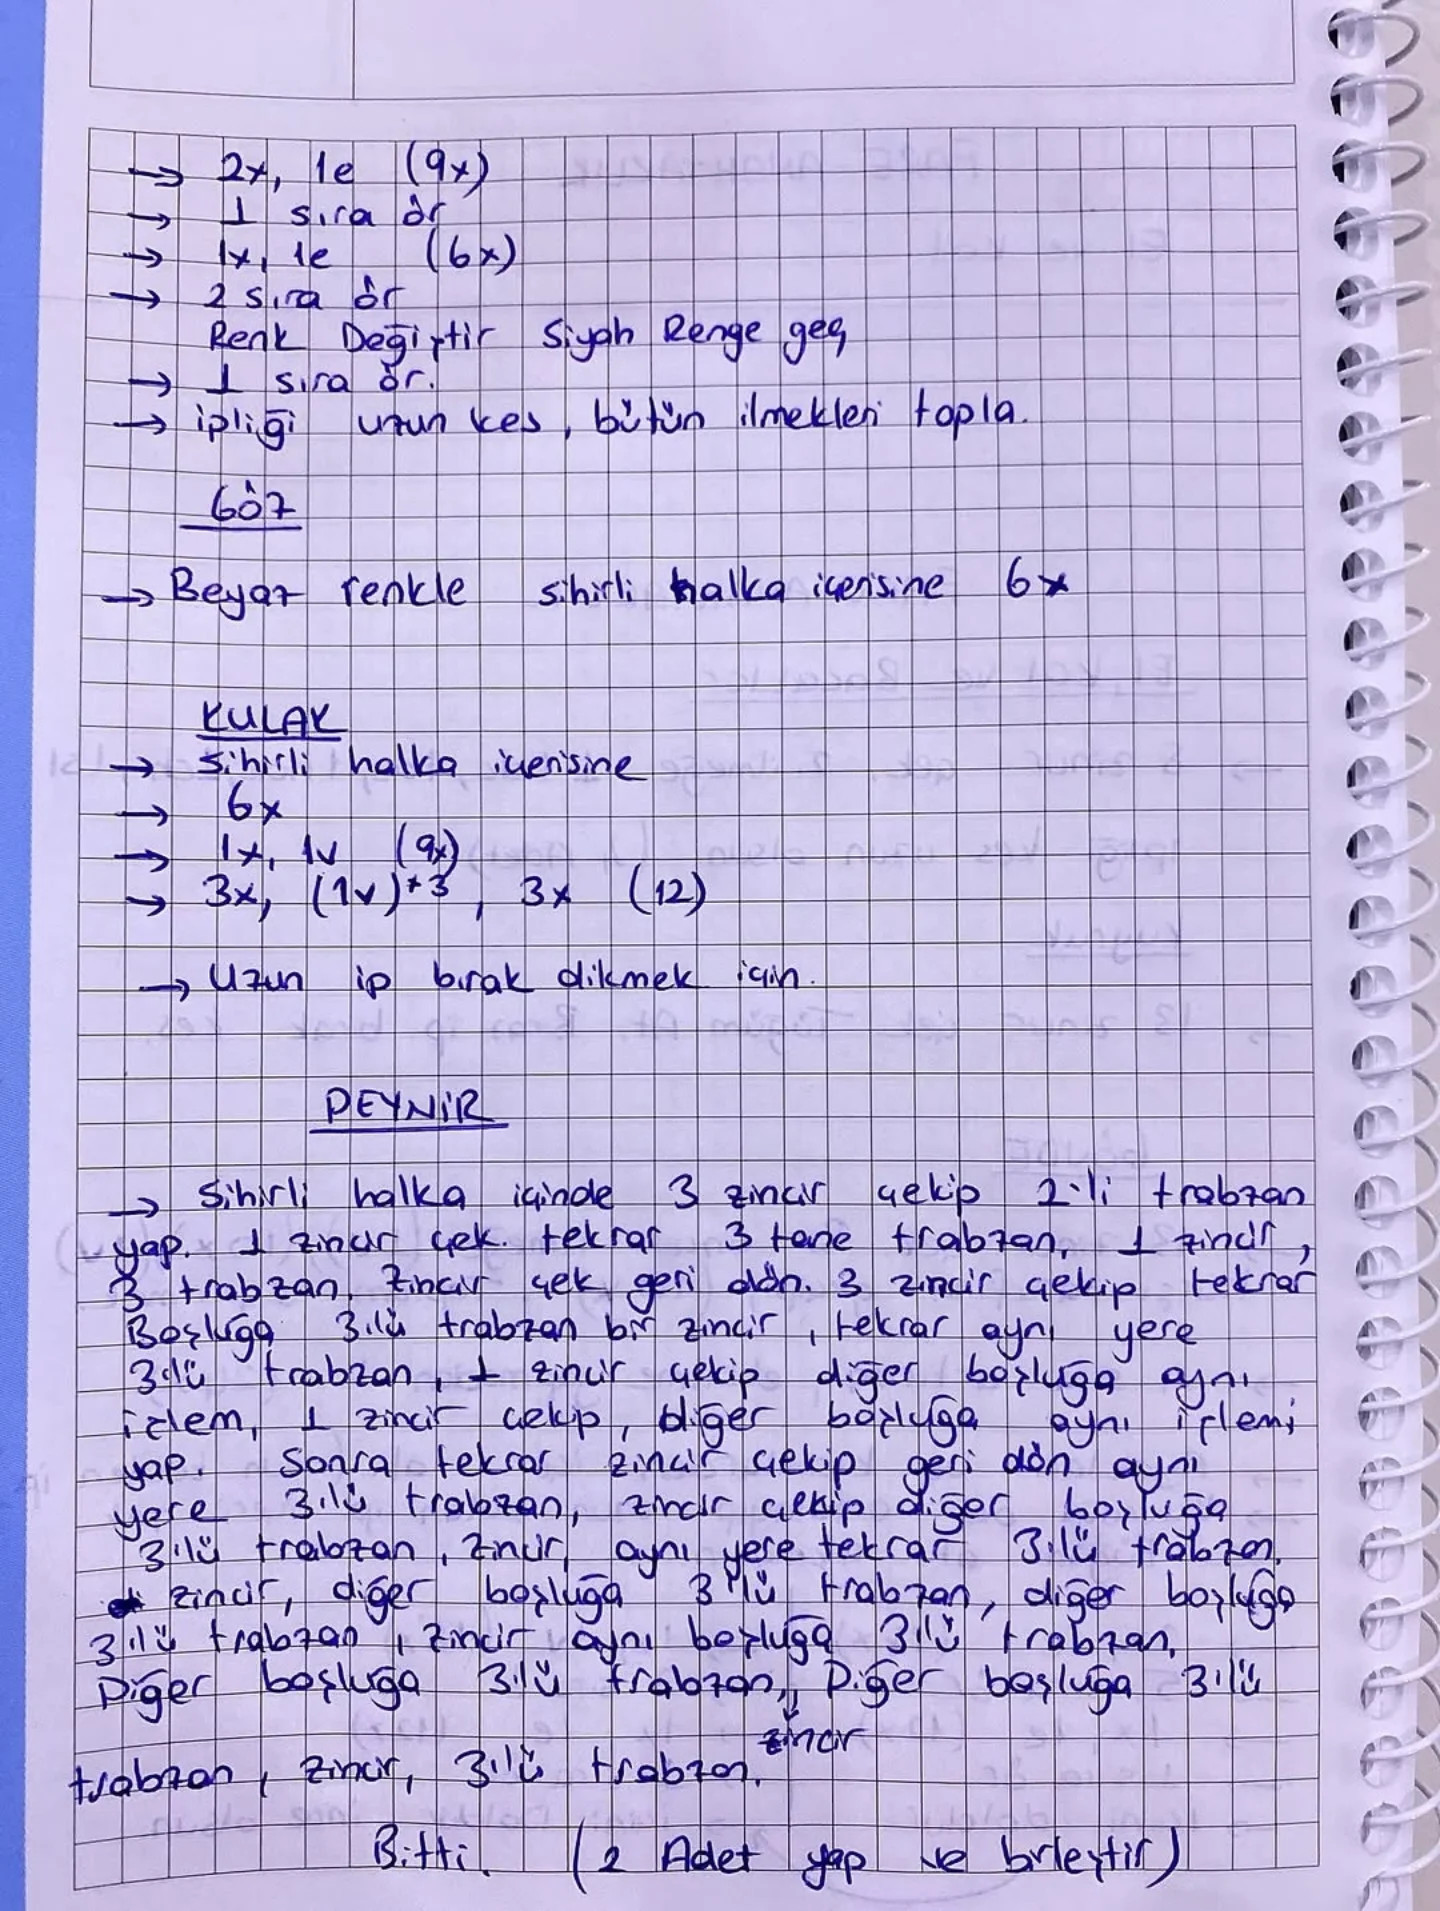 → 2x, 1e (9x)
→ 1 sıra ör
→ 1x, 1e (6x)
→ 2 sıra ör
Renk Değiştir Siyah Renge geç
→ 1 sıra ör.
→ ipliği uzun kes, bütün ilmekleri topla.
GÖZ
→ Beyaz renkle sihirli halka içerisine 6x
KULAK
→ sihirli halka içerisine
→ 6x
→ 1x, 1v (9x)
→ 3x, (1v)*3, 3x (12)
→ Uzun ip bırak dikmek için.
PEYNİR
→ Sihirli halka içinde 3 zincir çekip 2'li trabzan
yap. 1 zincir çek. tekrar 3 tane trabzan, 1 zincir,
3 trabzan, zincir çek geri dön. 3 zincir çekip tekrar
Boşluğa 3'lü trabzan bir zincir, tekrar aynı yere
3'lü trabzan, 1 zincir çekip diğer boşluğa aynı
işlem, 1 zincir çekip, diğer boşluğa aynı işlemi
yap. Sonra tekrar zincir çekip geri dön aynı
yere 3'lü trabzan, zincir çekip diğer boşluğa
3'lü trabzan, zincir, aynı yere tekrar 3'lü trabzan,
zincir, diğer boşluğa 3'lü trabzan, diğer boşluğa
3'lü trabzan, zincir aynı boşluğa 3'lü trabzan,
Diğer boşluğa 3'lü trabzan, Diğer boşluğa 3'lü
zincir
trabzan, zincir, 3'lü trabzan.
Bitti. (2 Adet yap ve birleştir)